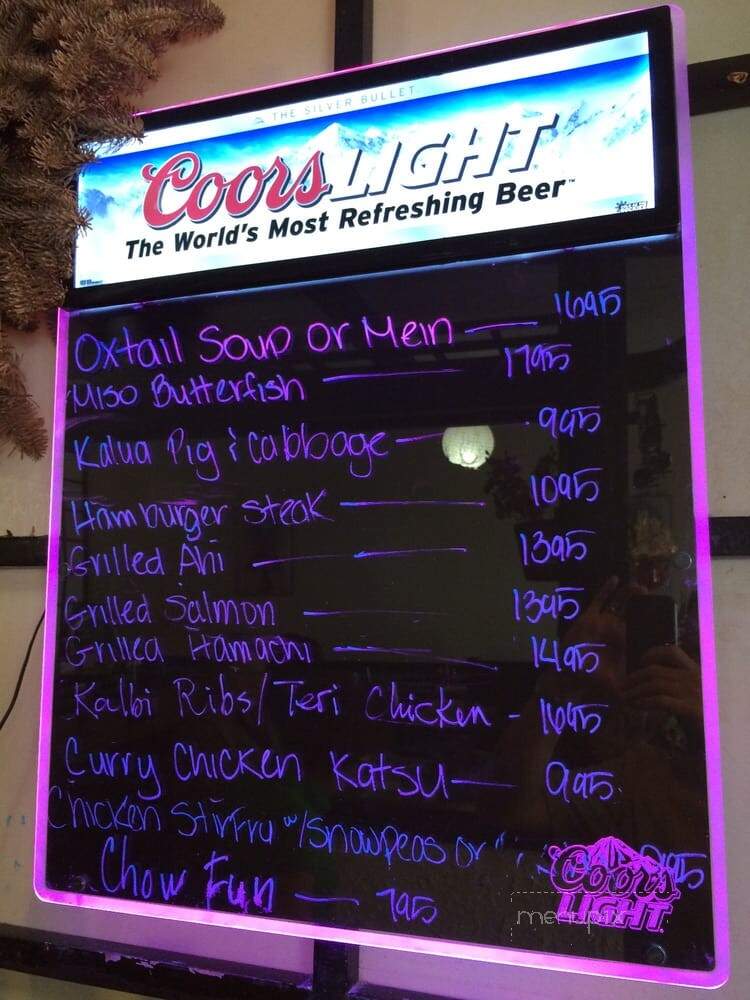 THE SILVER BULLET
Coors LIGHT
The World's Most Refreshing Beer™
Oxtail Soup or Mein — 1695
Miso Butterfish — 1795
Kalua Pig & Cabbage — 995
Hamburger Steak — 1095
Grilled Ahi — 1395
Grilled Salmon — 1395
Grilled Hamachi — 1495
Kalbi Ribs/Teri Chicken - 1695
Curry Chicken Katsu — 995
Chicken Stirfry w/Snowpeas or
Chow Fun — 795
Coors LIGHT
menupix